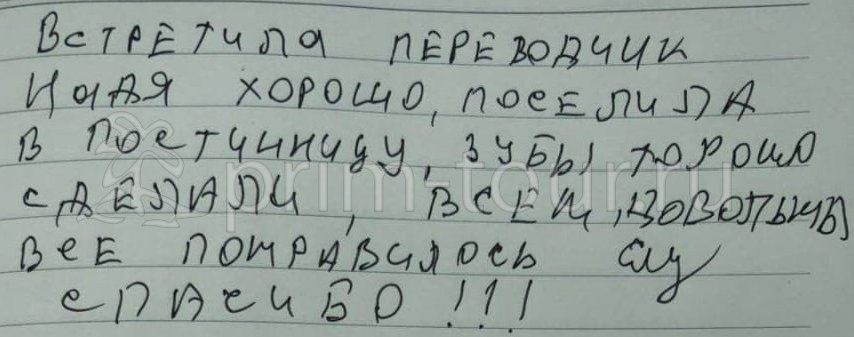 Встретила переводчик
Надя хорошо, поселила
в гостиницу, зубы хорошо
сделали, всем, довольны
все понравилось
спасибо !!!
prim-tour.ru